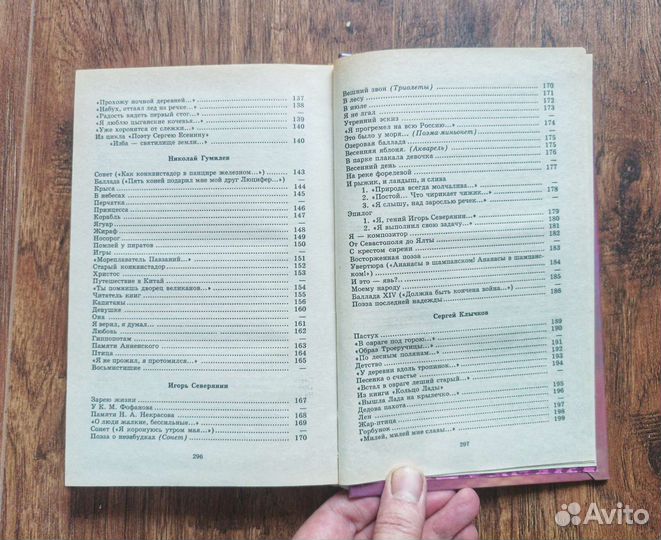 «Прохожу ночной деревней...» 137
«Набух, оттаял лед на речке...» 138
«Радость видеть первый стог... —
«Я люблю цыганские кочевья...» 139
«Уже хоронится от слежки...» 140
Из цикла «Поэту Сергею Есенину»
«Изба — святилище земли...» 140
Николай Гумилев
Сонет («Как конквистадор в панцире железном...») 143
Баллада («Пять коней подарил мне мой друг Люцифер...») —
Крыса 144
В небесах 145
Перчатка —
Принцесса 146
Корабль 147
Ягуар —
Жираф 148
Носорог 149
Помпей у пиратов 150
Игры —
«Мореплаватель Павзаний...» 151
Старый конквистадор 152
Христос 153
Путешествие в Китай —
«Ты помнишь дворец великанов...» 154
Читатель книг 155
Капитаны 156
Девушке 160
Она —
Я верил, я думал... 161
Любовь 162
Гиппопотам —
Памяти Анненского 163
Птица 164
«Я не прожил, я протомился...» 165
Восьмистишие —
Игорь Северянин
Зарею жизни 167
У К. М. Фофанова —
Памяти Н. А. Некрасова 168
«О люди жалкие, бессильные...» 169
Сонет («Я коронуюсь утром мая...») —
Поэза о незабудках (Сонет) 170
296
Вешний звон (Триолеты) 170
В лесу 171
В июле 172
Я не лгал 173
Утренний эскиз —
«Я прогремел на всю Россию...» 174
Это было у моря... (Поэма-миньонет) —
Озеровая баллада 175
Весенняя яблоня. (Акварель) 175
В парке плакала девочка —
Весенний день 177
На реке форелевой —
И рыжик, и ландыш, и слива
1. «Природа всегда молчалива...» —
2. «Постой... Что чирикает чижик...» 178
3. «Я слышу, над зарослью речек...» —
Эпилог
1. «Я, гений Игорь Северянин...» 179
2. «Я выполнил свою задачу...» 180
Я — композитор 181
От Севастополя до Ялты 182
С крестом сирени —
Восторженная поэза —
Увертюра («Ананасы в шампанском! Ананасы в шампан-
ском!») 184
И это — явь?.. —
Моему народу 185
Баллада XIV («Должна быть кончена война...») —
Поэза последней надежды 186
Сергей Клычков
Пастух 189
«В овраге под горою...» 190
«Образ Троеручицы...» —
«По лесным полянам...» 191
Детство 192
«У деревни вдоль тропинок...» 193
Песенка о счастье 194
«Встал в овраге леший старый...» —
Из книги «Кольцо Лады»
«Вышла Лада на крылечко...» 195
Дедова пахота 196
Лен 197
Жар-птица 198
Горбунок 199
«Милей, милей мне славы...» —
297
Avito